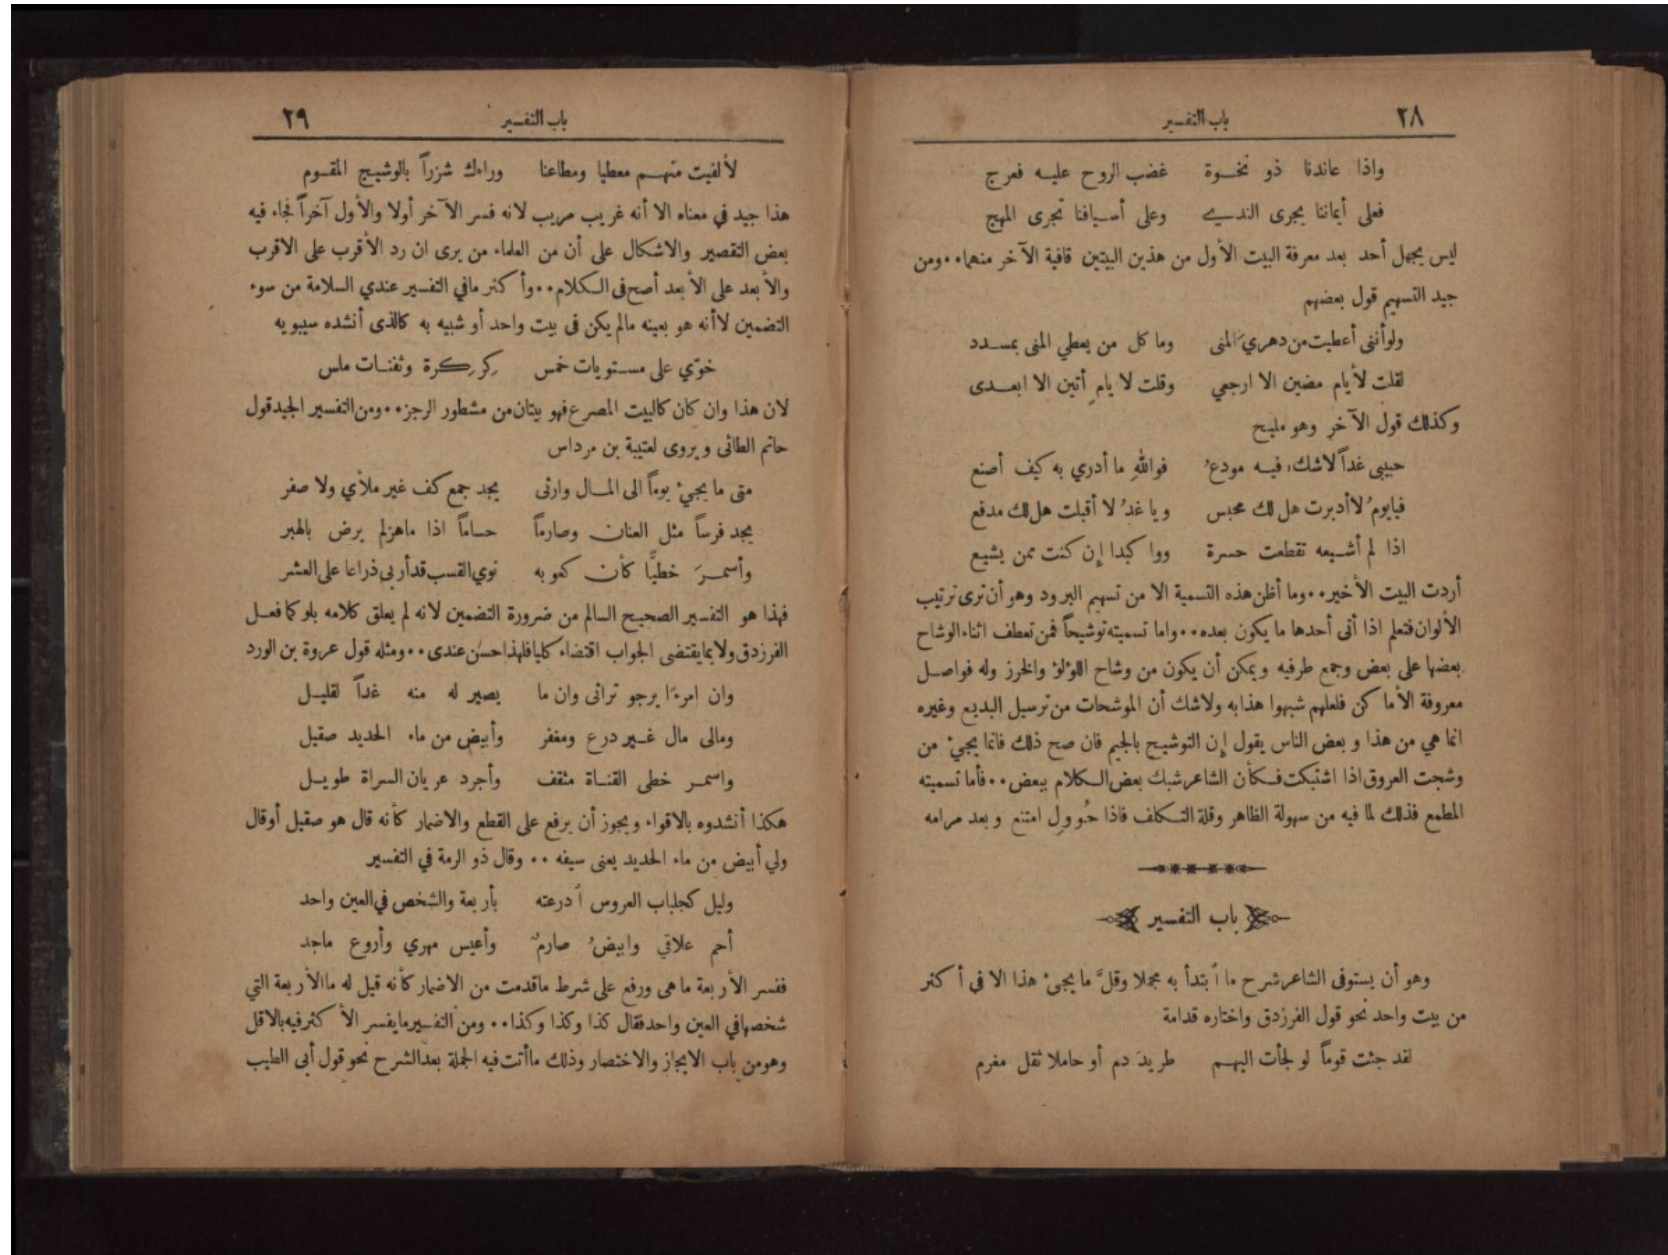 ٢٨ باب التفسير
واذا عاندنا ذو نخوة غضب الروح عليه فعرج
فعلى أيماننا يجرى الندى وعلى أسيافنا تجرى المهج
ليس يجهل أحد بعد معرفة البيت الأول من هذين البيتين قافية الآخر منهما٠٠ومن
جيد التسهيم قول بعضهم
ولوأننى أعطيت من دهري المنى وما كل من يعطي المنى بمسدد
لقلت لأيام مضين الا ارجعي وقلت لايام أتين الا ابعدى
وكذلك قول الآخر وهو مليح
حبيبي غداً لاشك فيه مودعُ فواللهِ ما أدري به كيف أصنع
فيايومُ لاأدبرت هل لك محبس ويا غدُ لا أقبلت هل لك مدفع
اذا لم أشيعه تقطعت حسرة ووا كبدا إن كنت ممن يشيع
أردت البيت الأخير٠٠وما أظن هذه التسمية الا من تسهيم البرود وهو أن ترى ترتيب
الألوان فتعلم اذا أتى أحدها ما يكون بعده٠٠واما تسميته توشيحاً فمن تعطف اثناء الوشاح
بعضها على بعض وجمع طرفيه ويمكن أن يكون من وشاح اللؤلؤ والخرز وله فواصل
معروفة الأماكن فلعلهم شبهوا هذا به ولاشك أن الموشحات من ترسيل البديع وغيره
انما هي من هذا وبعض الناس يقول إن التوشيج بالجيم فان صح ذلك فانما يجيء من
وشجت العروق اذا اشتبكت فكأن الشاعر شبك بعض الكلام ببعض٠٠فأما تسميته
المطمع فذلك لما فيه من سهولة الظاهر وقلة التكلف فاذا حُوول امتنع وبعد مرامه
باب التفسير
وهو أن يستوفى الشاعر شرح ما ابتدأ به مجملا وقلَّ ما يجيء هذا الا في أكثر
من بيت واحد نحو قول الفرزدق واختاره قدامة
لقد جئت قوماً لو لجأت اليهم طريدَ دم أو حاملا ثقل مغرم
باب التفسير ٢٩
لألفيت منهم معطيا ومطاعنا وراءك شزراً بالوشيج المقوم
هذا جيد في معناه الا أنه غريب مريب لانه فسر الآخر أولا والأول آخراً فجاء فيه
بعض التقصير والاشكال على أن من العلماء من يرى ان رد الأقرب على الاقرب
والأبعد على الأبعد أصح في الكلام٠٠وأكثر مافي التفسير عندي السلامة من سوء
التضمين لاأنه هو بعينه مالم يكن فى بيت واحد أو شبيه به كالذى أنشده سيبويه
خوّي على مستويات خمس كِركِرة وثفنات ملس
لان هذا وان كان كالبيت المصرع فهو بيتان من مشطور الرجز٠٠ومن التفسير الجيد قول
حاتم الطائى ويروى لعتيبة بن مرداس
متى ما يجيء يوماً الى المال وارثى يجد جمع كف غير ملأي ولا صفر
يجد فرساً مثل العنان وصارماً حساماً اذا ماهزلم يرض بالهبر
وأسمرَ خطيًّا كأن كعوبه نوي القسب قد أربى ذراعا على العشر
فهذا هو التفسير الصحيح السالم من ضرورة التضمين لانه لم يعلق كلامه بلو كما فعل
الفرزدق ولا بما يقتضى الجواب اقتضاء كليا فلهذا حسن عندى٠٠ومثله قول عروة بن الورد
وان امرءًا يرجو تراثى وان ما يصير له منه غداً لقليل
ومالى مال غير درع ومغفر وأبيض من ماء الحديد صقيل
واسمر خطى القناة مثقف وأجرد عريان السراة طويل
هكذا أنشدوه بالاقواء ويجوز أن يرفع على القطع والاضمار كأنه قال هو صقيل أوقال
ولي أبيض من ماء الحديد يعنى سيفه ٠٠ وقال ذو الرمة في التفسير
وليل كجلباب العروس ادرعته بأربعة والشخص في العين واحد
أحم علافي وابيضُ صارمٌ وأعيس مهري وأروع ماجد
ففسر الأربعة ما هى ورفع على شرط ماقدمت من الاضمار كأنه قيل له ماالأربعة التي
شخصها في العين واحد فقال كذا وكذا وكذا٠٠ ومن التفسير مايفسر الأكثر فيه بالاقل
وهومن باب الايجاز والاختصار وذلك ماأتت فيه الجملة بعد الشرح نحو قول أبى الطيب